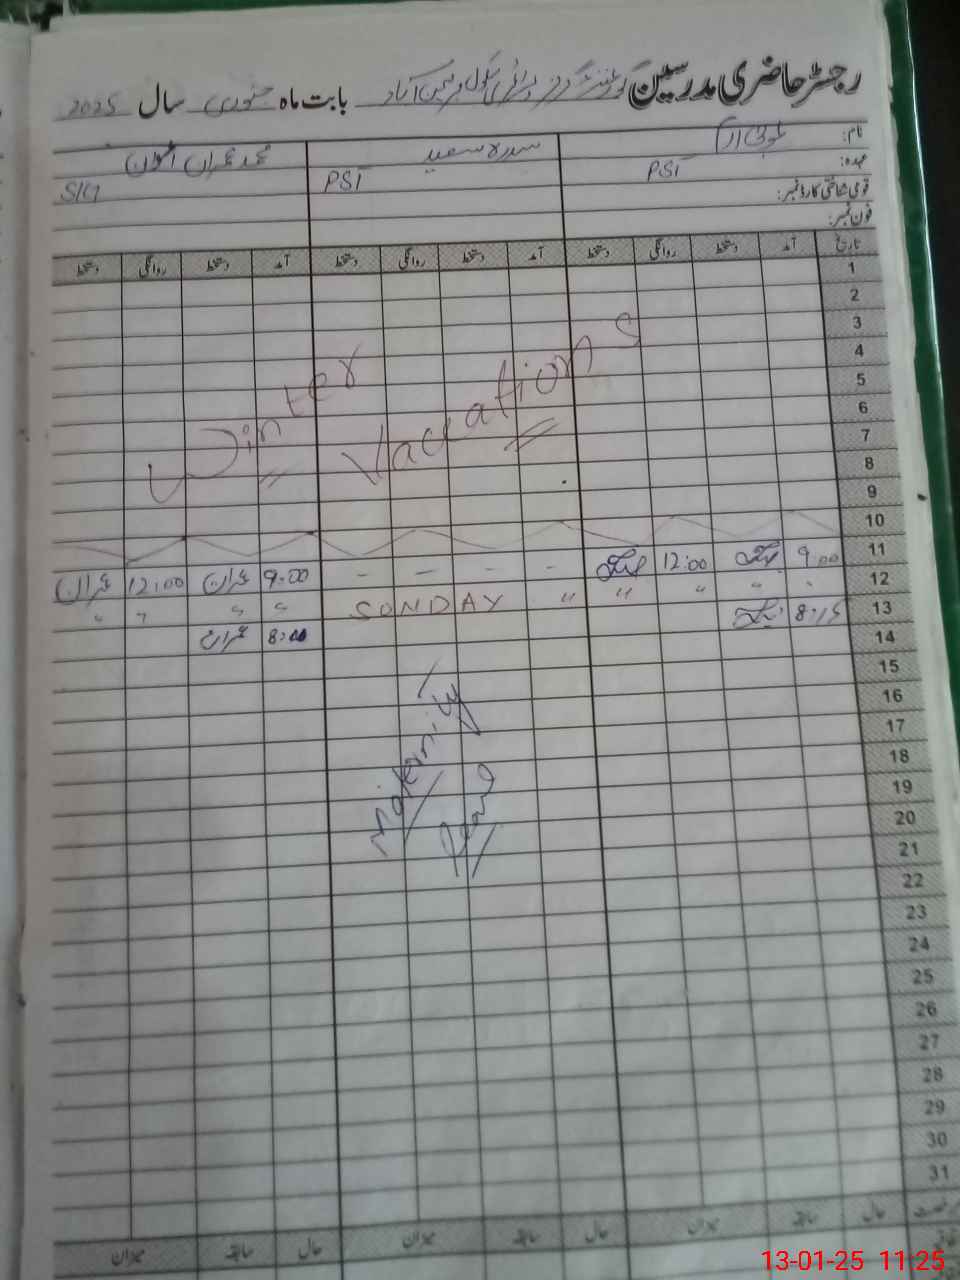 رجسٹر حاضری مدرسین گورنمنٹ گرلز پرائمری سکول آباد بابت ماہ جنوری سال 2025
نام: سدرہ سعید محمد عمران
عہدہ: PST PST
قومی شناختی کارڈ نمبر:
فون نمبر:
تاریخ آمد دستخط روانگی دستخط آمد دستخط روانگی دستخط آمد دستخط روانگی دستخط
1
2
3
4
5
6
7
8
9
10
Winter Vacations
11
12 9:00 12:00 - - - - 9:00 عمران 12:00 عمران
13 " " " " " SUNDAY " " " "
14 8:15 8:00 عمران
15
16
17
18
19
20
21
Maternity
leave
22
23
24
25
26
27
28
29
30
31
حال سابقہ میزان حال سابقہ میزان حال سابقہ میزان
13-01-25 11:25